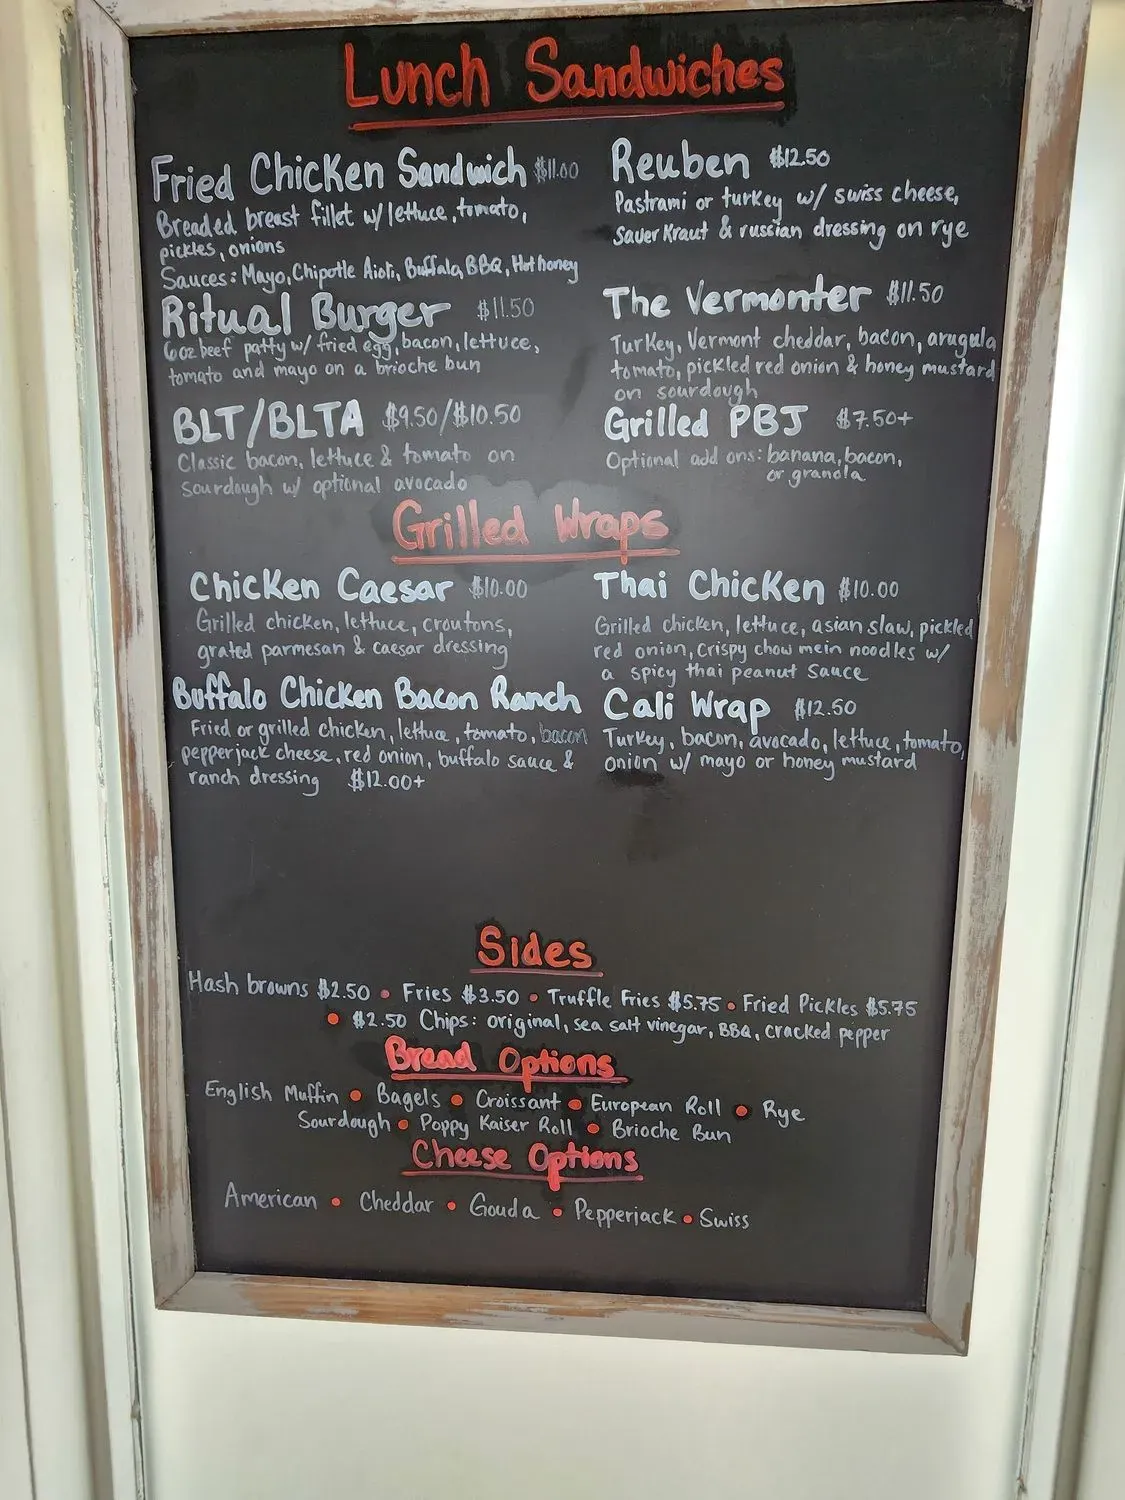 Lunch Sandwiches
Fried Chicken Sandwich $11.00
Breaded breast fillet w/ lettuce, tomato,
pickles, onions
Sauces: Mayo, Chipotle Aioli, Buffalo, BBQ, Hot honey
Ritual Burger $11.50
6oz beef patty w/ fried egg, bacon, lettuce,
tomato and mayo on a brioche bun
BLT/BLTA $9.50/$10.50
Classic bacon, lettuce & tomato on
sourdough w/ optional avocado
Reuben $12.50
Pastrami or turkey w/ swiss cheese,
Sauer Kraut & russian dressing on rye
The Vermonter $11.50
Turkey, Vermont cheddar, bacon, arugula
tomato, pickled red onion & honey mustard
on sourdough
Grilled PBJ $7.50+
Optional add ons: banana, bacon,
or granola
Grilled Wraps
Chicken Caesar $10.00
Grilled chicken, lettuce, croutons,
grated parmesan & caesar dressing
Buffalo Chicken Bacon Ranch
Fried or grilled chicken, lettuce, tomato, bacon
pepperjack cheese, red onion, buffalo sauce &
ranch dressing $12.00+
Thai Chicken $10.00
Grilled chicken, lettuce, asian slaw, pickled
red onion, crispy chow mein noodles w/
a spicy thai peanut sauce
Cali Wrap $12.50
Turkey, bacon, avocado, lettuce, tomato,
onion w/ mayo or honey mustard
Sides
Hash browns $2.50 • Fries $3.50 • Truffle Fries $5.75 • Fried Pickles $5.75
• $2.50 Chips: original, sea salt vinegar, BBQ, cracked pepper
Bread Options
English Muffin • Bagels • Croissant • European Roll • Rye
Sourdough • Poppy Kaiser Roll • Brioche Bun
Cheese Options
American • Cheddar • Gouda • Pepperjack • Swiss